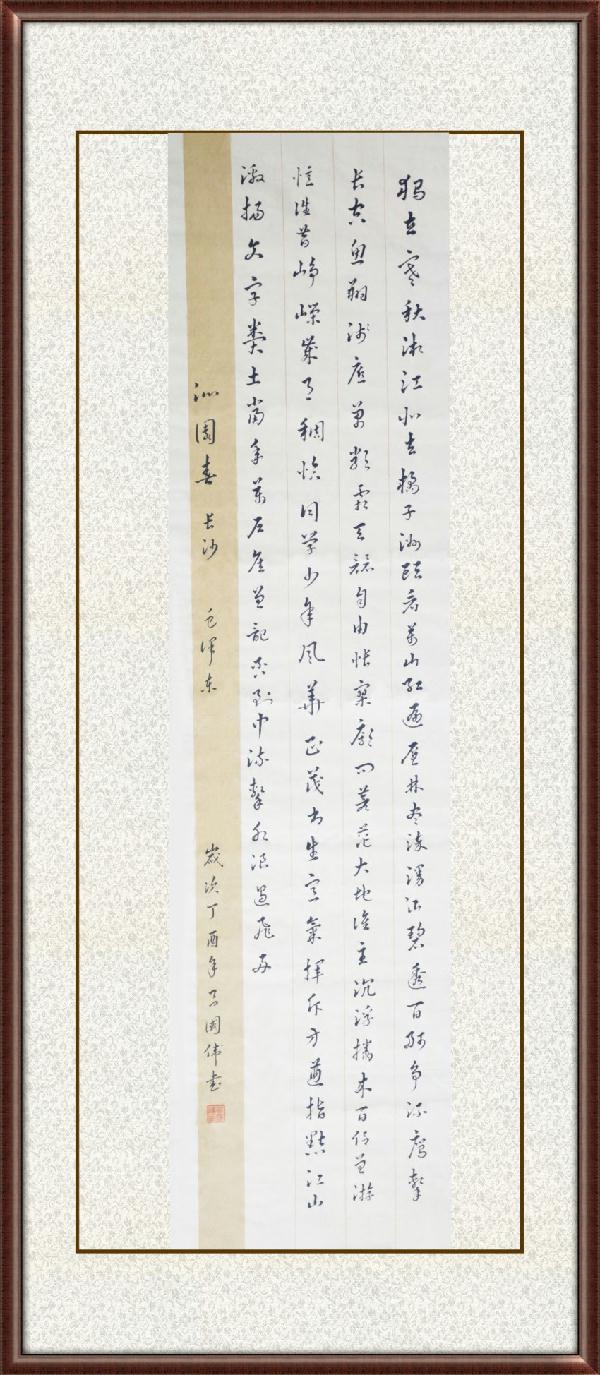 独立寒秋湘江北去橘子洲头看万山红遍层林尽染漫江碧透百舸争流鹰击
长空鱼翔浅底万类霜天竞自由怅寥廓问苍茫大地谁主沉浮携来百侣曾游
忆往昔峥嵘岁月稠恰同学少年风华正茂书生意气挥斥方遒指點江山
激扬文字粪土当年万户侯曾记否到中流击水浪遏飞舟
沁園春 长沙 毛泽东 歲次丁酉年 國伟書